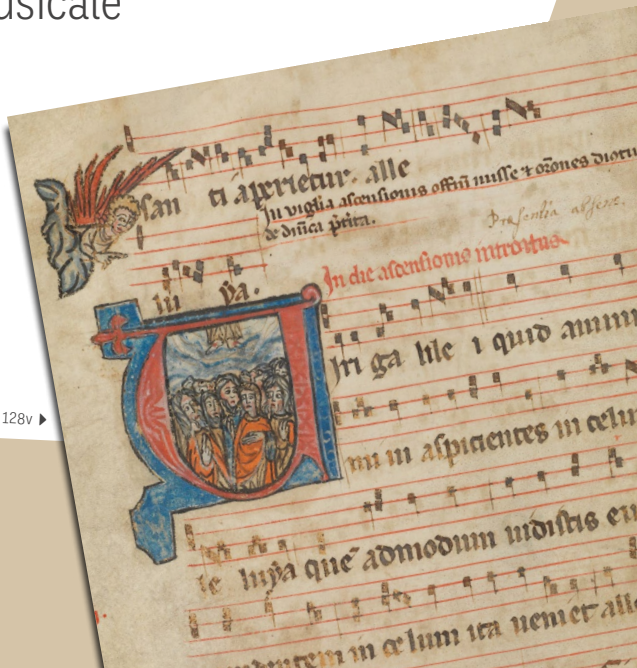 usicale
san ti aperietur. alle
In vigilia ascensionis offm misse & orones
de dnica ptita.
Presentia absens.
lu ya.
In die ascensionis introitus
iri ga lile i quid ammi
128v
mi ni aspicientes in celu
le luya que admodum vidistis eu
in celum ita veniet alle